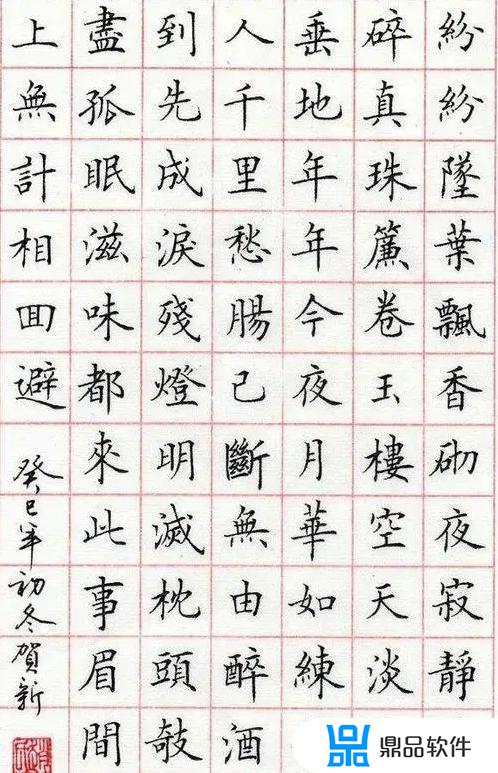 紛紛墜葉飄香砌夜寂靜
碎真珠簾卷玉樓空天淡
垂地年年今夜月華如練
人千里愁腸已斷無由醉酒
到先成淚殘燈明滅枕頭攲
盡孤眠滋味都來此事眉間
上無計相囬避
癸巳年初冬賀新
鼎品软件